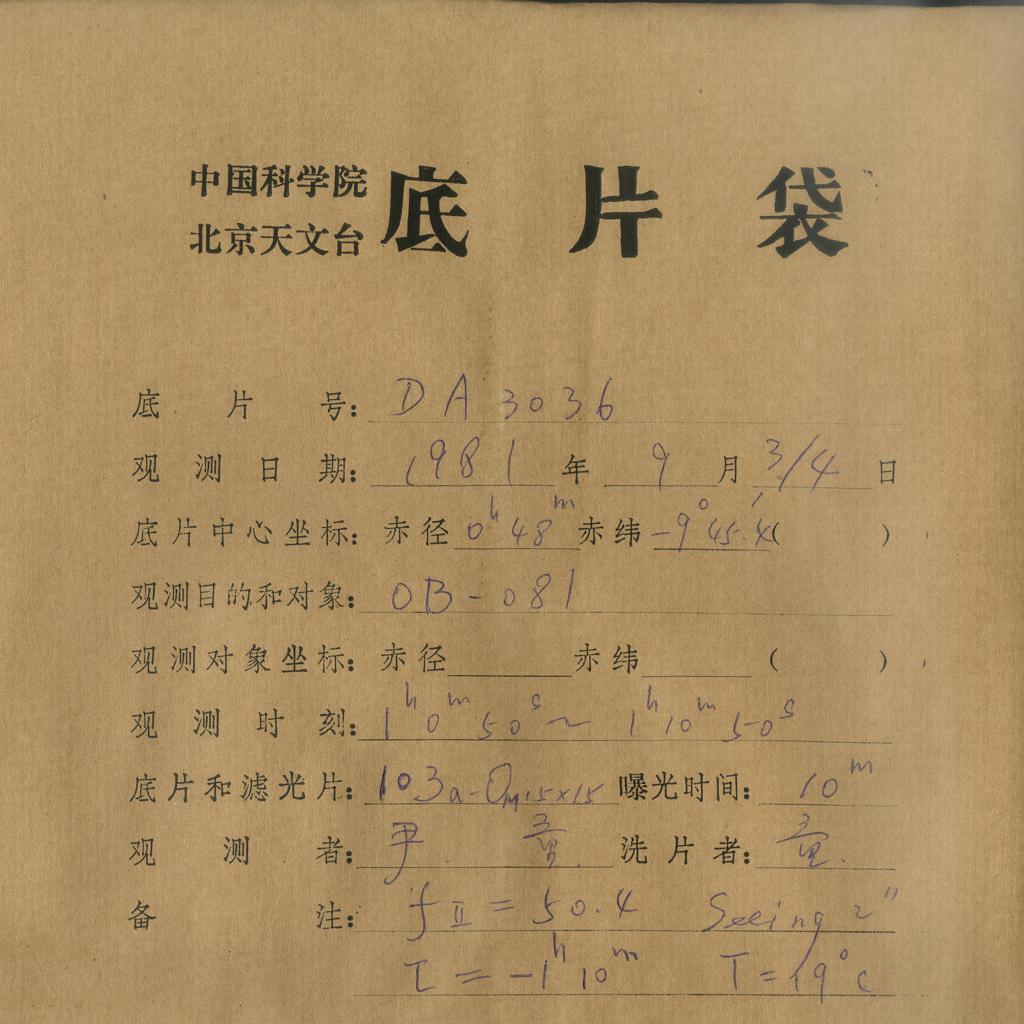 中国科学院
北京天文台
底片袋
底片号: DA 3036
观测日期: 1981年 9月 3/4日
底片中心坐标: 赤径 0ʰ48ᵐ 赤纬 -9°45.4′( )
观测目的和对象: OB-081
观测对象坐标: 赤径 赤纬 ( )
观测时刻: 1ʰ0ᵐ50ˢ～1ʰ10ᵐ50ˢ
底片和滤光片: 103a-O 15×15 曝光时间: 10ᵐ
观测者: 尹 洗片者:
备注: fⅡ=50.4 Seeing 2″
τ=-1ʰ10ᵐ T=19°C